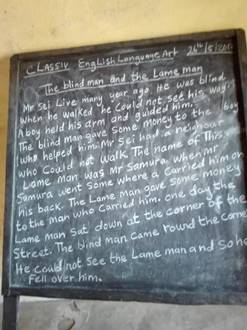 CLASS IV English Language Art 26th/5/
The blind man and the Lame man
Mr Sei Live many year ago. He was blind
When he walked he could not see his way.
A boy held his arm and guided him.
The blind man gave some money to the boy
who helped him. Mr Sei had a neighbour
who Could not walk. The name of This
Lame man was Mr Samura. When Mr
Samura went Some where a Carried him on
his back. The Lame man gave some money
to the man who Carried him. one day the
Lame man sat down at the corner of the
Street. The blind man came round the Corner
He could not see the Lame man and so he
Fell over him.